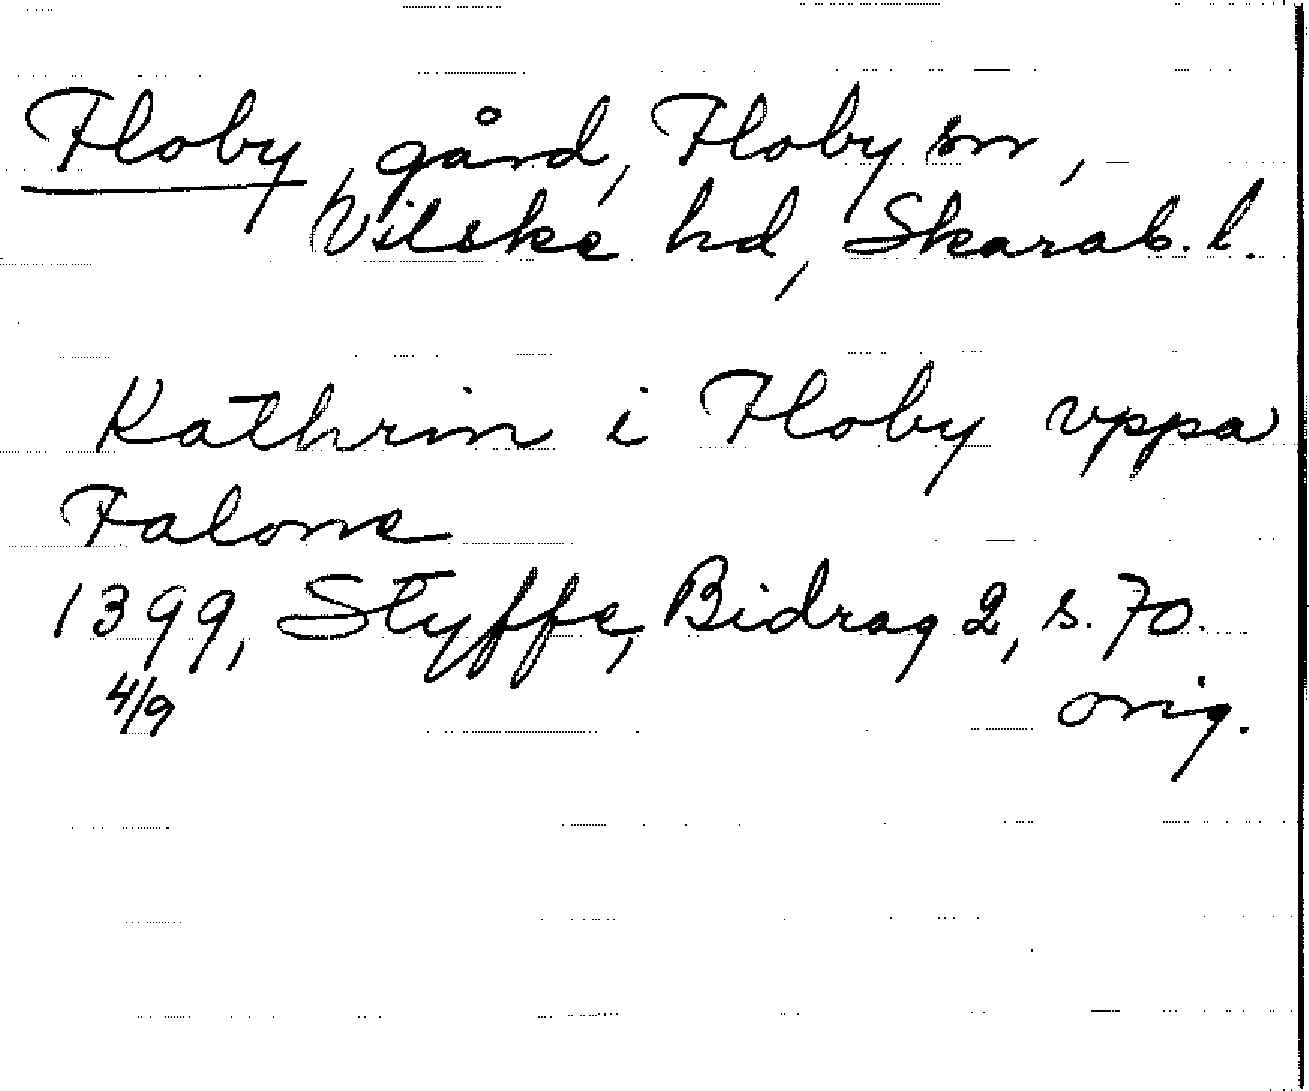 Floby, gård, Floby sn,
Vilske hd, Skarab. l.
Kathrin i Floby vppa
Falone
1399, Styffe, Bidrag 2, s. 70.
4/9 orig.